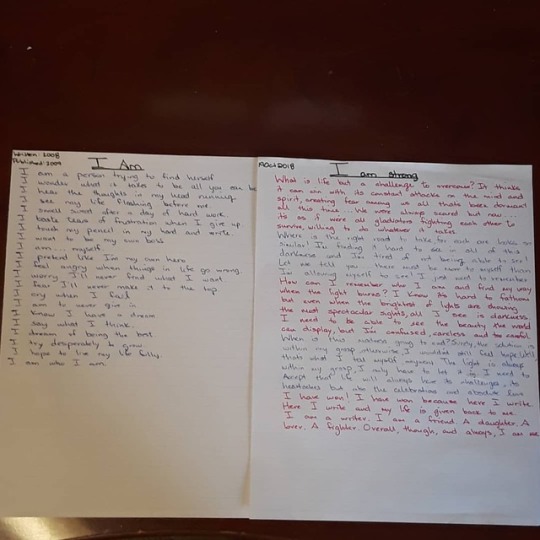 Written: 2008
Published: 2009
I Am
I am a person trying to find herself
I wonder what it takes to be all you can be
I hear the thoughts in my head running.
I see my life flashing before me
I smell sweat after a day of hard work.
I taste tears of frustration when I give up.
I touch my pencil in my hand and write
I want to be my own boss
I am.... myself.
I pretend like I'm my own hero
I feel angry when things in life go wrong.
I worry I'll never find what I want
I fear I'll never make it to the top
I cry when I fail
I aim to never give in
I know I have a dream
I say what I think.
I dream of being the best
I try desperately to grow.
I hope to live my life fully.
I am who I am.
2018
I am strong
What is life but a challenge to overcome? It thinks
it can win with its constant attacks on the mind and
spirit, creating fear among us all that's been dormant
all this time... We were always scared but now...
its as if were all gladiators fighting each other to
survive, willing to do whatever it takes.
Where is the right road to take, for each one looks so
similar! I'm finding it hard to see in all of this
darkness and I'm tired of not being able to see!
Let me tell you there must be more to myself than
I'm allowing myself to see! I just want to remember
How can I remember who I am and find my way
when the light burns? I know its hard to fathom
but even when the brightest of lights are showing
the most spectacular sights, all I see is darkness
I need to be able to see the beauty the world
can display, but I'm confused, careless and
When is this madness going to end? Surely, the solution is
within my grasp otherwise I wouldn't still feel hope. Well
that's what I tell myself anyway. The light is always
within my grasp, I only have to let it in. I need to
accept that life will always have its challenges, its
heartaches but also the celebrations and love
I have won! I have won because here I write.
Here I write and my life is given back to me.
I am a writer. I am a friend. A daughter. A
lover. A fighter. Overall, though, and always, I am me